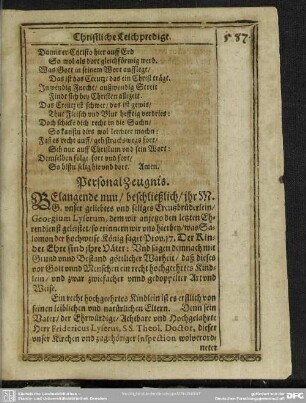 Christliche Leichpredigt.
Damit er Christo hier auff Erd
So wol als dort gleichförmig werd.
Was Gott in seinem Wort aufflegt/
Das ist das Creutz/ das ein Christ trägt.
Inwendig Furcht/ außwendig Streit
Findt sich bey Christen allezeit.
Das Creutz ist schwer/ das ist gewis/
Thut Fleisch und Blut hefftig verdries:
Doch schicke dich recht in die Sach/
So kanstu dirs wol leichter mach:
Faß es recht auff/
Sih nur auff Christum und sein Wort:
Demselben folge fort und fort/
So bistu selig hie und dort. Amen.
Personal Zeugnis.
BElangende nun/ beschließlich/ ihr M.
G. unser geliebtes und seliges Creutzbrüderlein/
Georgium Lyserum, dem wir anjetzo den letzten Eh-
rendienst geleistet/ so erinnern wir uns hierbey/ was Sa-
lomon der hochweise König saget Prov. 17. Der Kin-
der Ehre sind ihre Väter. Und sagen demnach mit
Grund und Bestand göttlicher Warheit/ daß dieses
vor Gott und Menschen ein recht hochgeehrtes Kind-
lein/ und zwar zwiefacher und gedoppelter Art und
Weise.
Ein recht hochgeehrtes Kindlein ist es erstlich von
seinen leiblichen und natürlichen Eltern. Denn sein
Vater/ der Ehrwürdige/ Achtbare und Hochgelahrte
Herr Fridericus Lyserus, SS. Theol. Doctor, dieser
unser Kirchen und zugehöriger Inspection wolverord-
neter